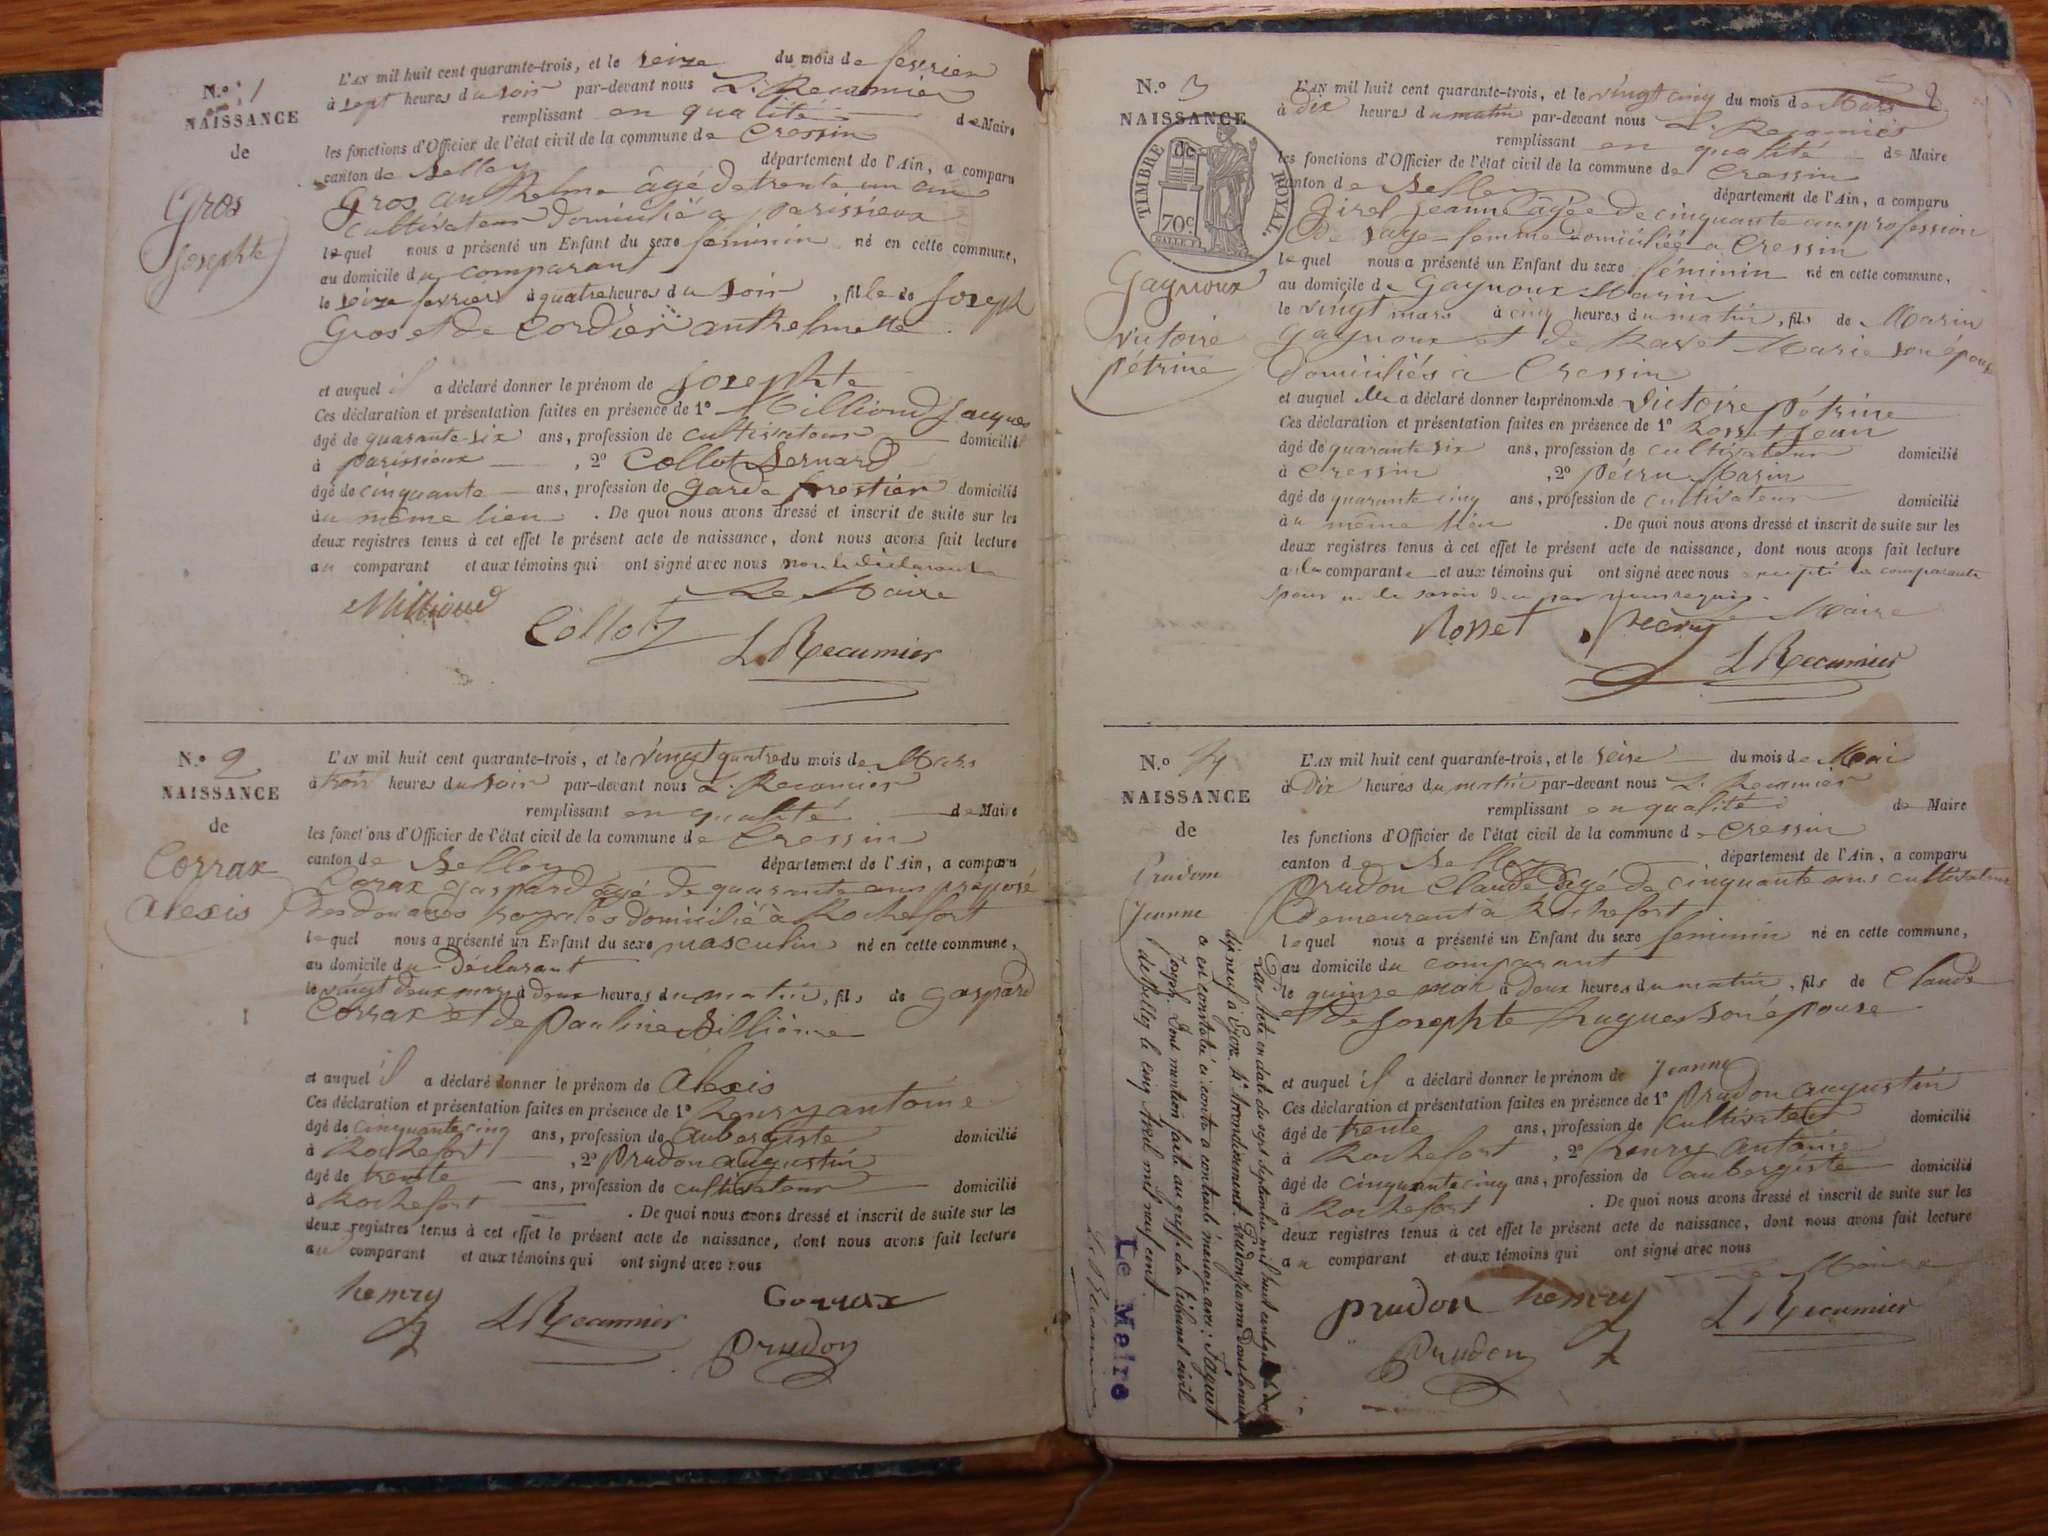 N.º 1
NAISSANCE
de
Gros
Josephte
L'AN mil huit cent quarante-trois, et le seize du mois de fevrier
à sept heures du soir par-devant nous L. Recamier
remplissant en qualité de Maire
les fonctions d'Officier de l'état civil de la commune de Cressin
canton de Belley département de l'Ain, a comparu
Gros anthelme âgé de trente un ans
cultivateur domicilié a parissieux
lequel nous a présenté un Enfant du sexe féminin né en cette commune,
au domicile du comparant
le seize fevrier à quatre heures du soir, fille de Joseph
Gros et de Cordier anthelmette
et auquel il a déclaré donner le prénom de Josephte
Ces déclaration et présentation faites en présence de 1º Milliond Jacques
âgé de quarante-six ans, profession de cultivateur domicilié
à parissieux, 2º Collot Bernard
âgé de cinquante ans, profession de garde forestier domicilié
au même lieu. De quoi nous avons dressé et inscrit de suite sur les
deux registres tenus à cet effet le présent acte de naissance, dont nous avons fait lecture
au comparant et aux témoins qui ont signé avec nous non le déclarant
Le Maire
Milliond
Collot
L Recamier
N.º 2
NAISSANCE
de
Corrax
alexis
L'AN mil huit cent quarante-trois, et le vingt quatre du mois de Mars
à trois heures du soir par-devant nous L. Recamier
remplissant en qualité de Maire
les fonctions d'Officier de l'état civil de la commune de Cressin
canton de Belley département de l'Ain, a comparu
Corax gaspard âgé de quarante ans préposé
des douanes royales domicilié à Rochefort
lequel nous a présenté un Enfant du sexe masculin né en cette commune,
au domicile du Déclarant
le vingt deux mars à deux heures du matin, fils de gaspard
Corrax et de pauline Billième
et auquel il a déclaré donner le prénom de alexis
Ces déclaration et présentation faites en présence de 1º henry antoine
âgé de cinquante cinq ans, profession de aubergiste domicilié
à Rochefort, 2º prudon augustin
âgé de trente ans, profession de cultivateur domicilié
à Rochefort. De quoi nous avons dressé et inscrit de suite sur les
deux registres tenus à cet effet le présent acte de naissance, dont nous avons fait lecture
au comparant et aux témoins qui ont signé avec nous
henry
L Recamier
Corrax
prudon
N.º 3
NAISSANCE
TIMBRE ROYAL.
de
70c.
Gagnoux
victoire
pétrine
L'AN mil huit cent quarante-trois, et le vingt cinq du mois de Mars
à dix heures du matin par-devant nous L. Recamier
remplissant en qualité de Maire
les fonctions d'Officier de l'état civil de la commune de Cressin
canton de Belley département de l'Ain, a comparu
Jeanne âgée de cinquante ans profession
de sage-femme domiciliée a Cressin
lequel nous a présenté un Enfant du sexe féminin né en cette commune,
au domicile de Gagnoux Marin
le vingt mars à cinq heures du matin, fils de Marin
gagnoux et de Ravet Marie son épouse
domiciliés à Cressin
et auquel elle a déclaré donner les prénoms de victoire pétrine
Ces déclaration et présentation faites en présence de 1º Rosset Jean
âgé de quarante six ans, profession de cultivateur domicilié
à Cressin, 2º pécru Marin
âgé de quarante cinq ans, profession de cultivateur domicilié
au même lieu. De quoi nous avons dressé et inscrit de suite sur les
deux registres tenus à cet effet le présent acte de naissance, dont nous avons fait lecture
a la comparante et aux témoins qui ont signé avec nous excepté la comparante
pour ne le savoir de ce par nous requis.
Le Maire
Rosset
L Recamier
N.º 4
NAISSANCE
de
Prudon
Jeanne
L'AN mil huit cent quarante-trois, et le seize du mois de Mai
à dix heures du matin par-devant nous L. Recamier
remplissant en qualité de Maire
les fonctions d'Officier de l'état civil de la commune de Cressin
canton de Belley département de l'Ain, a comparu
prudon Claude âgé de cinquante ans cultivateur
demeurant à Rochefort
lequel nous a présenté un Enfant du sexe feminin né en cette commune,
au domicile du comparant
le quinze mai à deux heures du matin, fils de Claude
et de Josephte hugues son épouse
et auquel il a déclaré donner le prénom de Jeanne
Ces déclaration et présentation faites en présence de 1º prudon augustin
âgé de trente ans, profession de cultivateur domicilié
à Rochefort, 2º henry antoine
âgé de cinquante cinq ans, profession de aubergiste domicilié
à Rochefort. De quoi nous avons dressé et inscrit de suite sur les
deux registres tenus à cet effet le présent acte de naissance, dont nous avons fait lecture
au comparant et aux témoins qui ont signé avec nous
Le Maire
prudon
henry
L Recamier
prudon
Par Acte en date du sept Septembre mil huit cent
dix neuf à Lyon, 4e Arrondissement, Prudon Jeanne dont la naissance
a été constatée ci contre a contracté mariage avec : Paquet
Joseph. Dont mention faite au greffe du tribunal civil
de Belley le cinq Avril mil neuf cent.
Le Maire